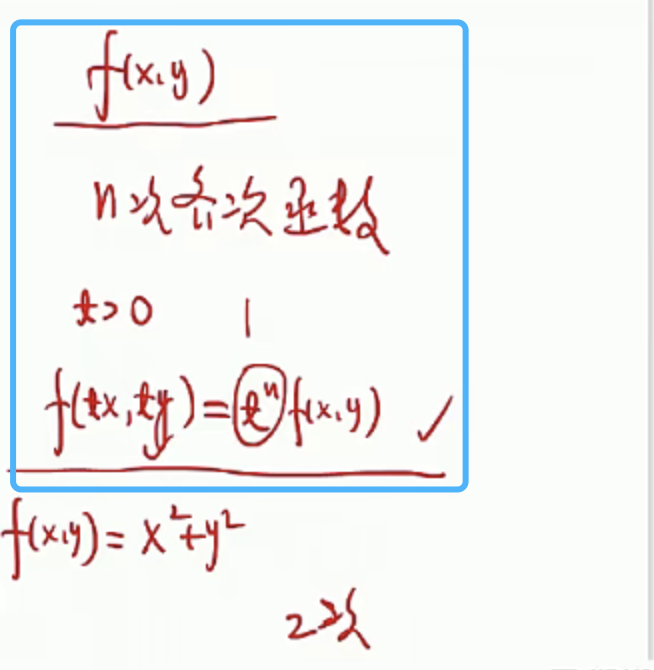 f(x,y)
n次齐次函数
t>0
f(tx,ty)=tⁿf(x,y) ✓
f(x,y)=x²+y²
2次